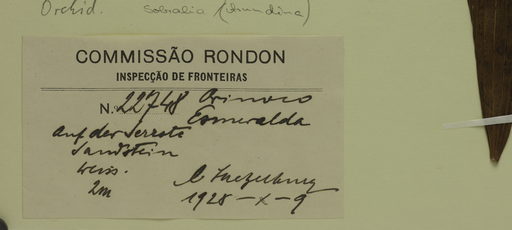 Orchid. Sobralia (
COMMISSÃO RONDON
INSPECÇÃO DE FRONTEIRAS
N. 22748 Orinoco
Esmeralda
auf der Serrote
Sandstein
weiss.
2m
Luetzelburg
1928-X-9